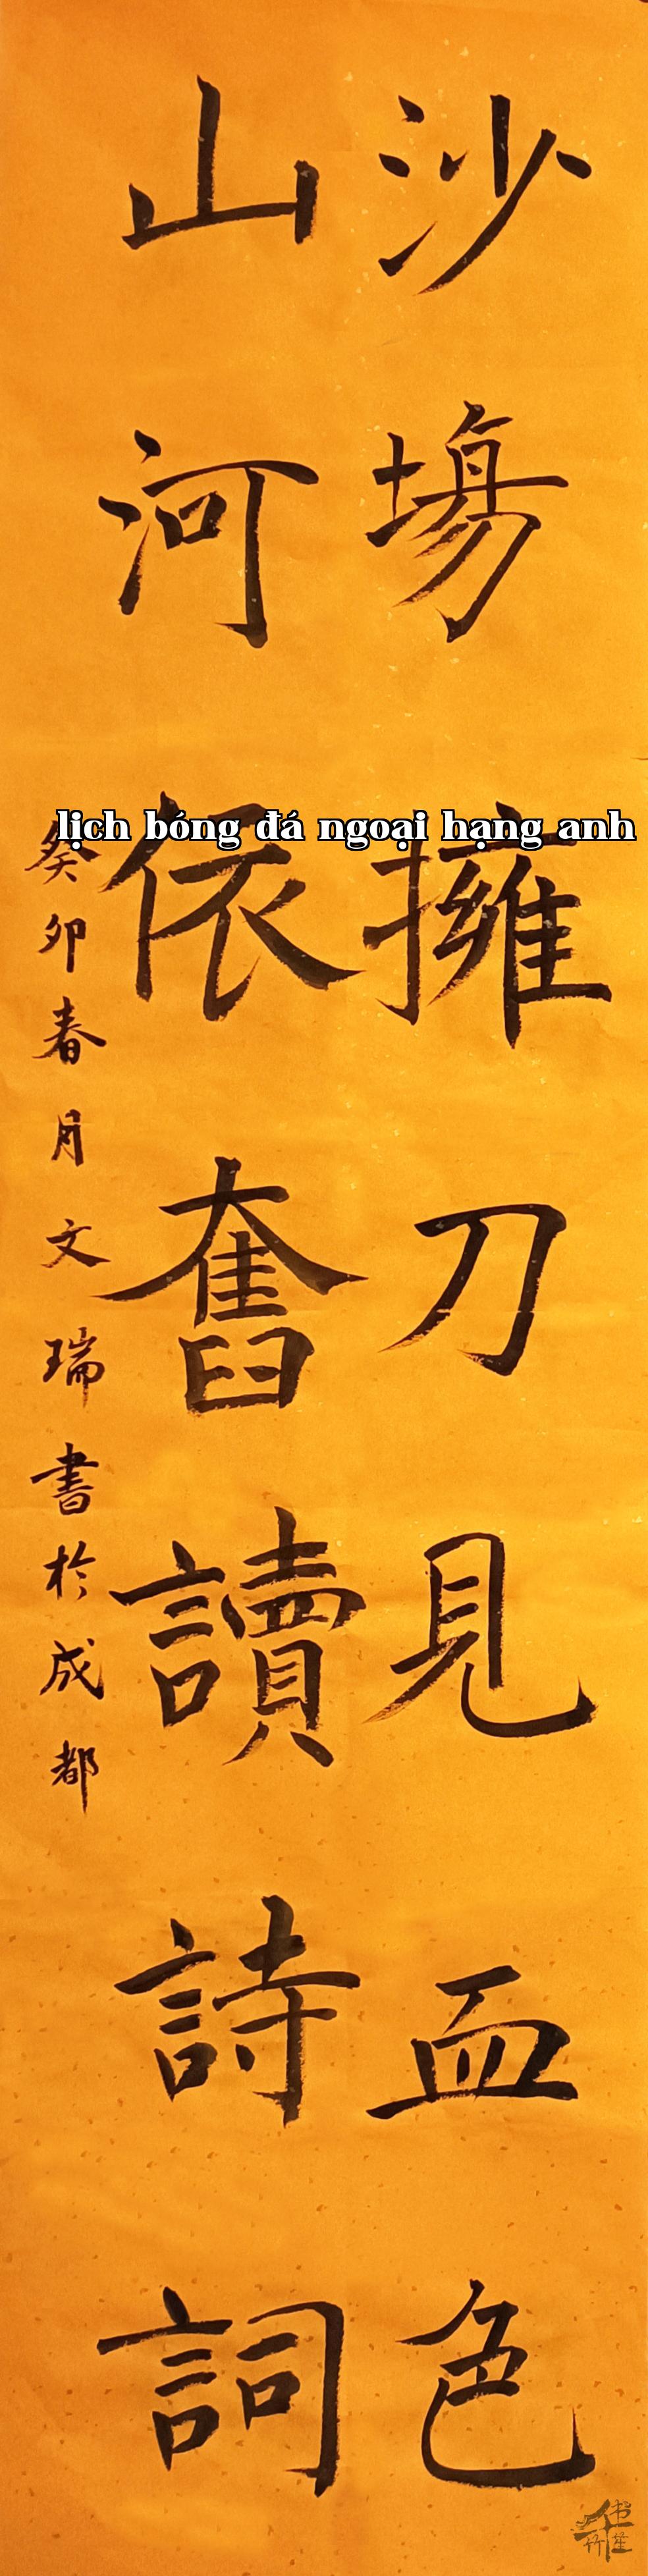 沙場擁刀見血色
山河依舊讀詩詞
癸卯春月文瑞書於成都
lịch bóng đá ngoại hạng anh